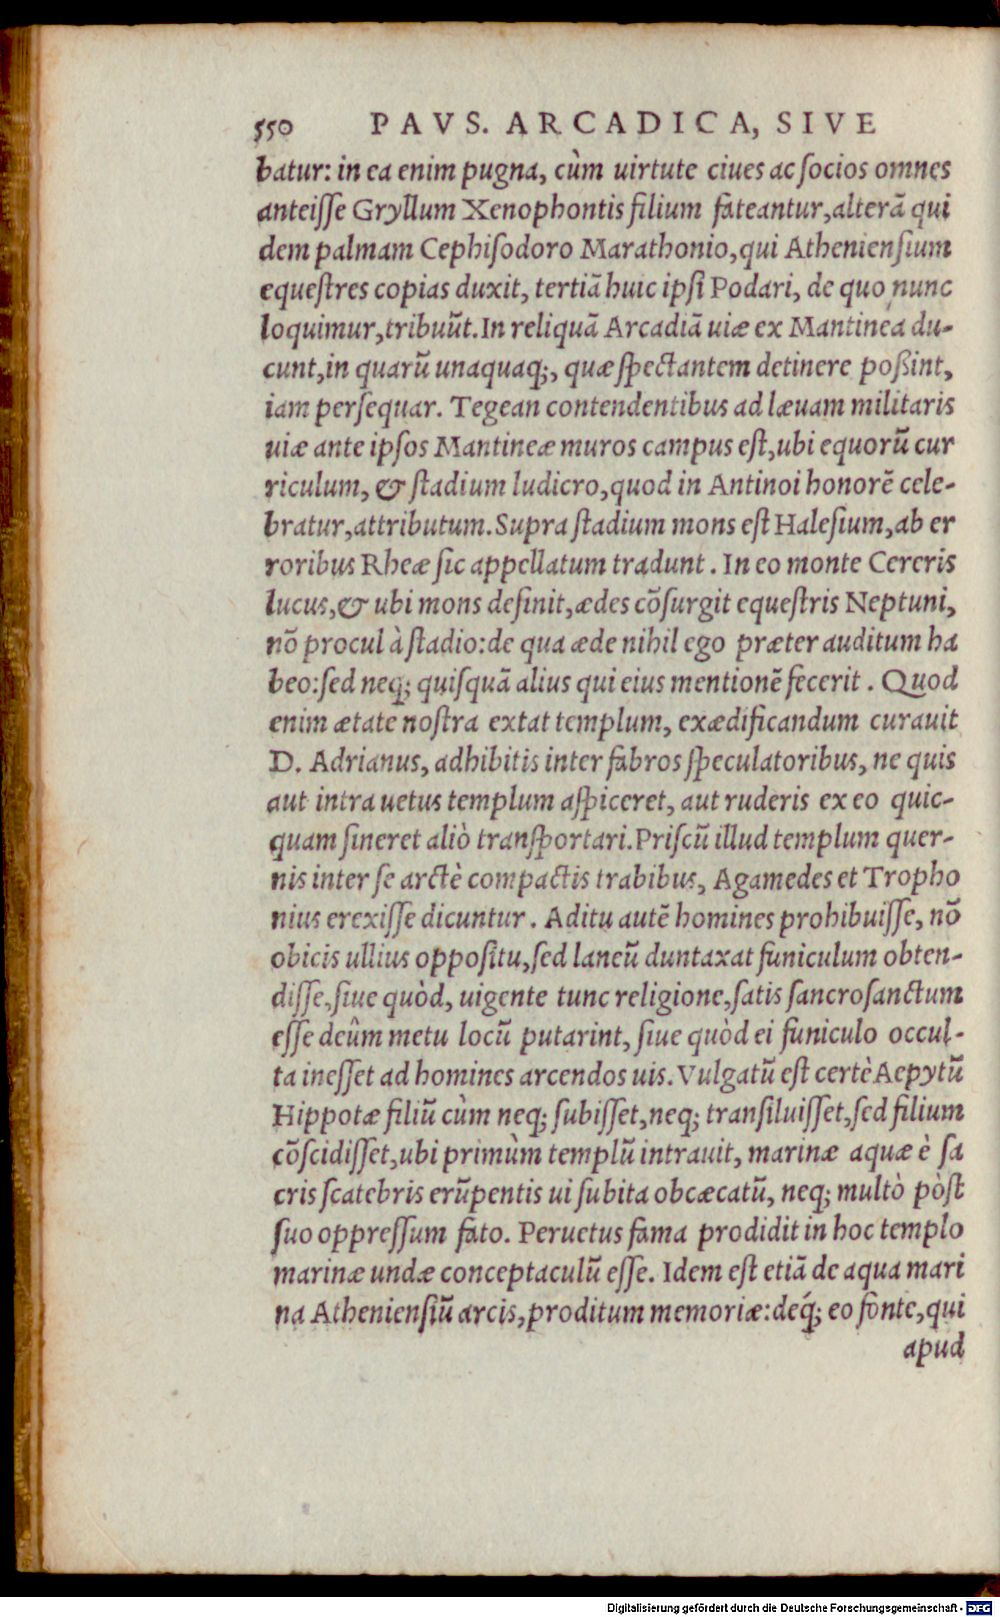 550 PAVS. ARCADICA, SIVE
batur: in ea enim pugna, cùm uirtute ciues ac ſocios omnes
anteiſſe Gryllum Xenophontis filium fateantur, alterā qui
dem palmam Cephiſodoro Marathonio, qui Athenienſium
equeſtres copias duxit, tertiā huic ipſi Podari, de quo nunc
loquimur, tribuūt. In reliquā Arcadiā uiæ ex Mantinea du-
cunt, in quarū unaquaq;, quæ ſpectantem detinere poßint,
iam perſequar. Tegean contendentibus ad læuam militaris
uiæ ante ipſos Mantineæ muros campus eſt, ubi equorū cur
riculum, & ſtadium ludicro, quod in Antinoi honorē cele-
bratur, attributum. Supra ſtadium mons eſt Haleſium, ab er
roribus Rheæ ſic appellatum tradunt. In eo monte Cereris
lucus, & ubi mons deſinit, ædes cōſurgit equeſtris Neptuni,
nō procul à ſtadio: de qua æde nihil ego præter auditum ha
beo: ſed neq; quiſquā alius qui eius mentionē fecerit. Quod
enim ætate noſtra extat templum, exædificandum curauit
D. Adrianus, adhibitis inter fabros ſpeculatoribus, ne quis
aut intra uetus templum aſpiceret, aut ruderis ex eo quic-
quam ſineret aliò tranſportari. Priſcū illud templum quer-
nis inter ſe arctè compactis trabibus, Agamedes et Tropho
nius erexiſſe dicuntur. Aditu autē homines prohibuiſſe, nō
obicis ullius oppoſitu, ſed laneū duntaxat funiculum obten-
diſſe, ſiue quòd, uigente tunc religione, ſatis ſancroſanctum
eſſe deûm metu locū putarint, ſiue quòd ei funiculo occul-
ta ineſſet ad homines arcendos uis. Vulgatū eſt certè Aepytū
Hippotæ filiū cùm neq; ſubiſſet, neq; tranſiluiſſet, ſed filium
cōſcidiſſet, ubi primùm templū intrauit, marinæ aquæ è ſa
cris ſcatebris erūpentis ui ſubita obcæcatū, neq; multò pòſt
ſuo oppreſſum fato. Peruetus fama prodidit in hoc templo
marinæ undæ conceptaculū eſſe. Idem eſt etiā de aqua mari
na Athenienſiū arcis, proditum memoriæ: deq́; eo fonte, qui
apud
Digitalisierung gefördert durch die Deutsche Forschungsgemeinschaft - DFG